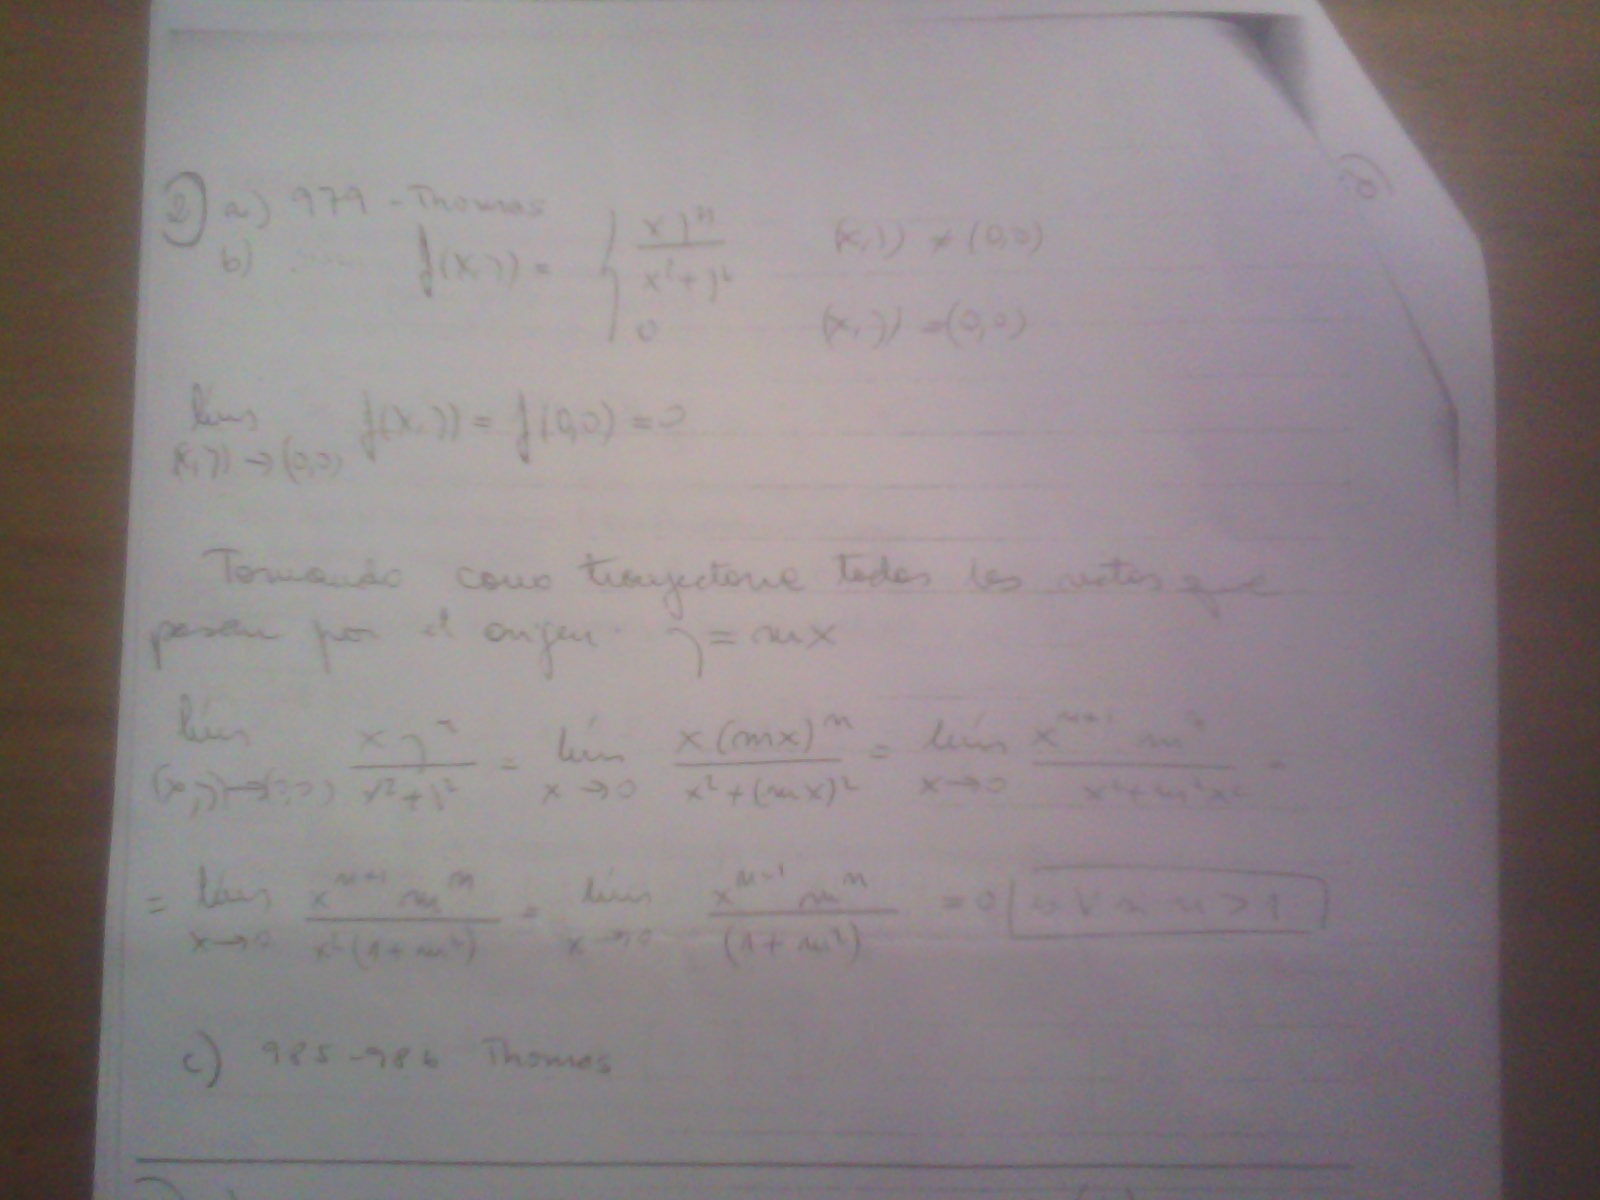 2) a) 979 - Thomas
b) f(x,y) = { xy^n / x²+y²   (x,y) ≠ (0,0)
0   (x,y) = (0,0)
lím (x,y)→(0,0) f(x,y) = f(0,0) = 0
Tomando como trayectoria todas las rectas que
pasan por el origen. y = mx
lím (x,y)→(0,0) xy^n / x²+y² = lím x→0 x(mx)^n / x²+(mx)² = lím x→0 x^{n+1} m^n / x²+m²x² =
= lím x→0 x^{n+1} m^n / x²(1+m²) = lím x→0 x^{n-1} m^n / (1+m²) = 0 n > 1
c) 985-986 Thomas